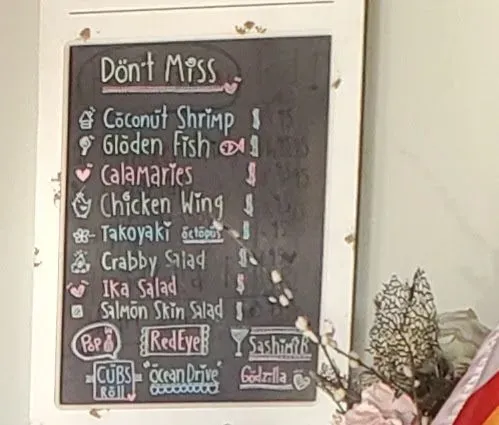 Dön't Miss
Cöconut Shrimp $
Glöden Fish $
Calamaries $
Chicken Wing $
Takoyaki öctöpus $
Crabby Salad $
Ika Salad $
Salmön Skin Salad $
Pop RedEye Sashimi
CUBS Röll "öcean Drive" Gödzilla